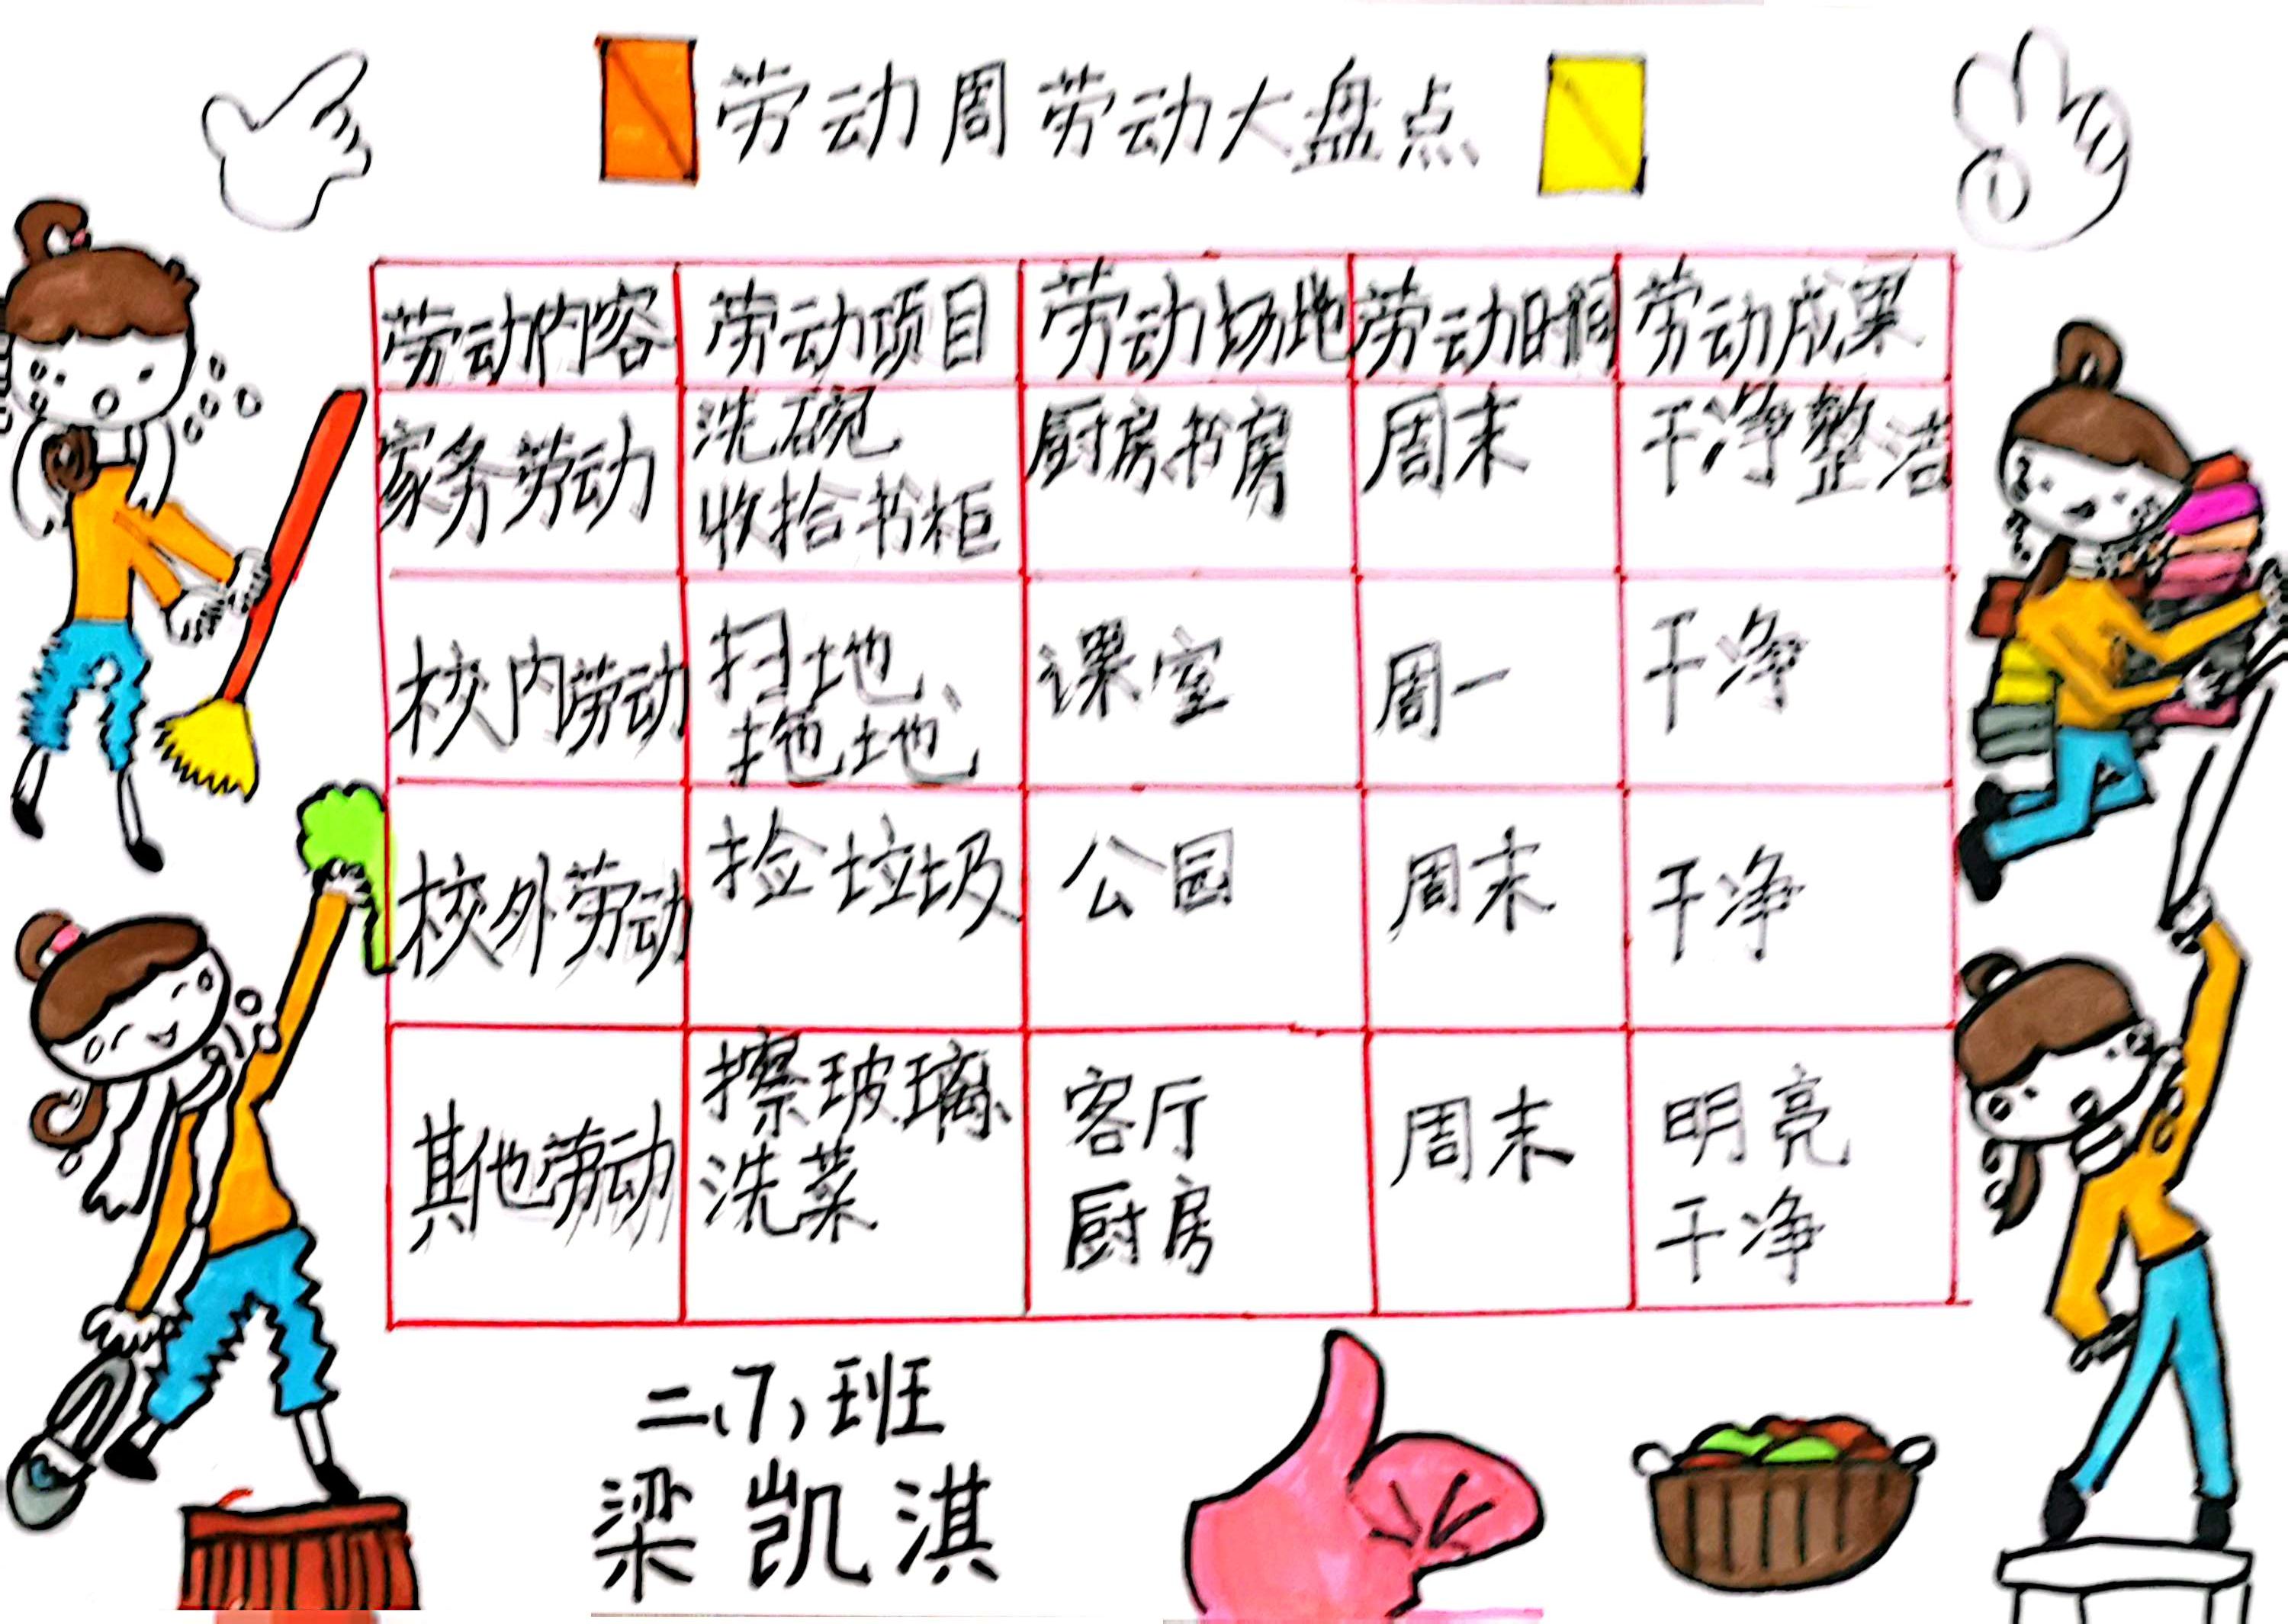 劳动周劳动大盘点
劳动内容 劳动项目 劳动场地 劳动时间 劳动成果
家务劳动 洗碗 厨房书房 周末 干净整洁
收拾书柜
校内劳动 扫地、 课室 周一 干净
拖地、
校外劳动 捡垃圾 公园 周末 干净
其他劳动 擦玻璃、 客厅 周末 明亮
洗菜 厨房 干净
二(7)班
梁凯淇